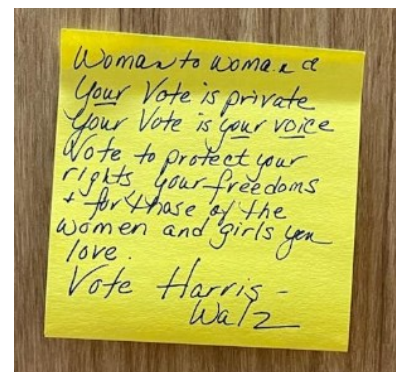 Woman to Woman
Your Vote is private
Your Vote is your voice
Vote to protect your
rights your freedoms
+ for those of the
women and girls you
love.
Vote Harris-
Walz